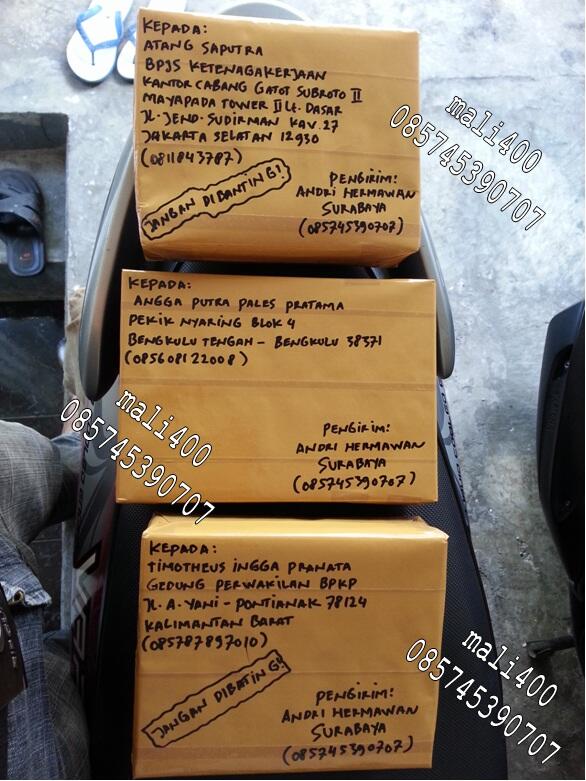 KEPADA:
ATANG SAPUTRA
BPJS KETENAGAKERJAAN
KANTOR CABANG GATOT SUBROTO II
MAYAPADA TOWER II Lt. DASAR
JL. JEND. SUDIRMAN KAV. 27
JAKARTA SELATAN 12930
(0811843787)
JANGAN DIBANTING!
PENGIRIM:
ANDRI HERMAWAN
SURABAYA
(085745390707)
mali400
085745390707
KEPADA:
ANGGA PUTRA PALES PRATAMA
PEKIK NYARING BLOK 4
BENGKULU TENGAH - BENGKULU 38371
(085608122008)
PENGIRIM:
ANDRI HERMAWAN
SURABAYA
(085745390707)
mali400
085745390707
KEPADA:
TIMOTHEUS INGGA PRANATA
GEDUNG PERWAKILAN BPKP
JL. A. YANI - PONTIANAK 78124
KALIMANTAN BARAT
(085787897010)
JANGAN DIBATING!
PENGIRIM:
ANDRI HERMAWAN
SURABAYA
(085745390707)
mali400
085745390707